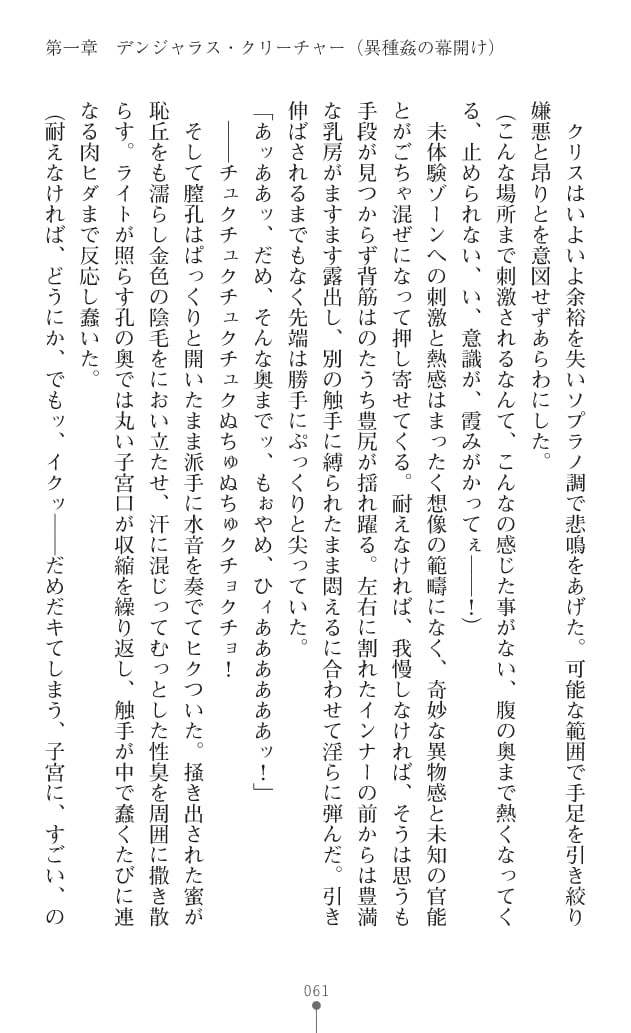 第一章　デンジャラス・クリーチャー（異種姦の幕開け）
クリスはいよいよ余裕を失いソプラノ調で悲鳴をあげた。可能な範囲で手足を引き絞り
嫌悪と昂りとを意図せずあらわにした。
（こんな場所まで刺激されるなんて、こんなの感じた事がない、腹の奥まで熱くなってく
る、止められない、い、意識が、霞みがかってぇ――！）
未体験ゾーンへの刺激と熱感はまったく想像の範疇になく、奇妙な異物感と未知の官能
とがごちゃ混ぜになって押し寄せてくる。耐えなければ、我慢しなければ、そうは思うも
手段が見つからず背筋はのたうち豊尻が揺れ躍る。左右に割れたインナーの前からは豊満
な乳房がますます露出し、別の触手に縛られたまま悶えるに合わせて淫らに弾んだ。引き
伸ばされるまでもなく先端は勝手にぷっくりと尖っていた。
「あッああッ、だめ、そんな奥までッ、もぉやめ、ひィああああああッ！」
――チュクチュクチュクチュクぬちゅぬちゅクチョクチョ！
そして膣孔はぱっくりと開いたまま派手に水音を奏でてヒクついた。掻き出された蜜が
恥丘をも濡らし金色の陰毛をにおい立たせ、汗に混じってむっとした性臭を周囲に撒き散
らす。ライトが照らす孔の奥では丸い子宮口が収縮を繰り返し、触手が中で蠢くたびに連
なる肉ヒダまで反応し蠢いた。
（耐えなければ、どうにか、でもッ、イクッ――だめだキてしまう、子宮に、すごい、の
061